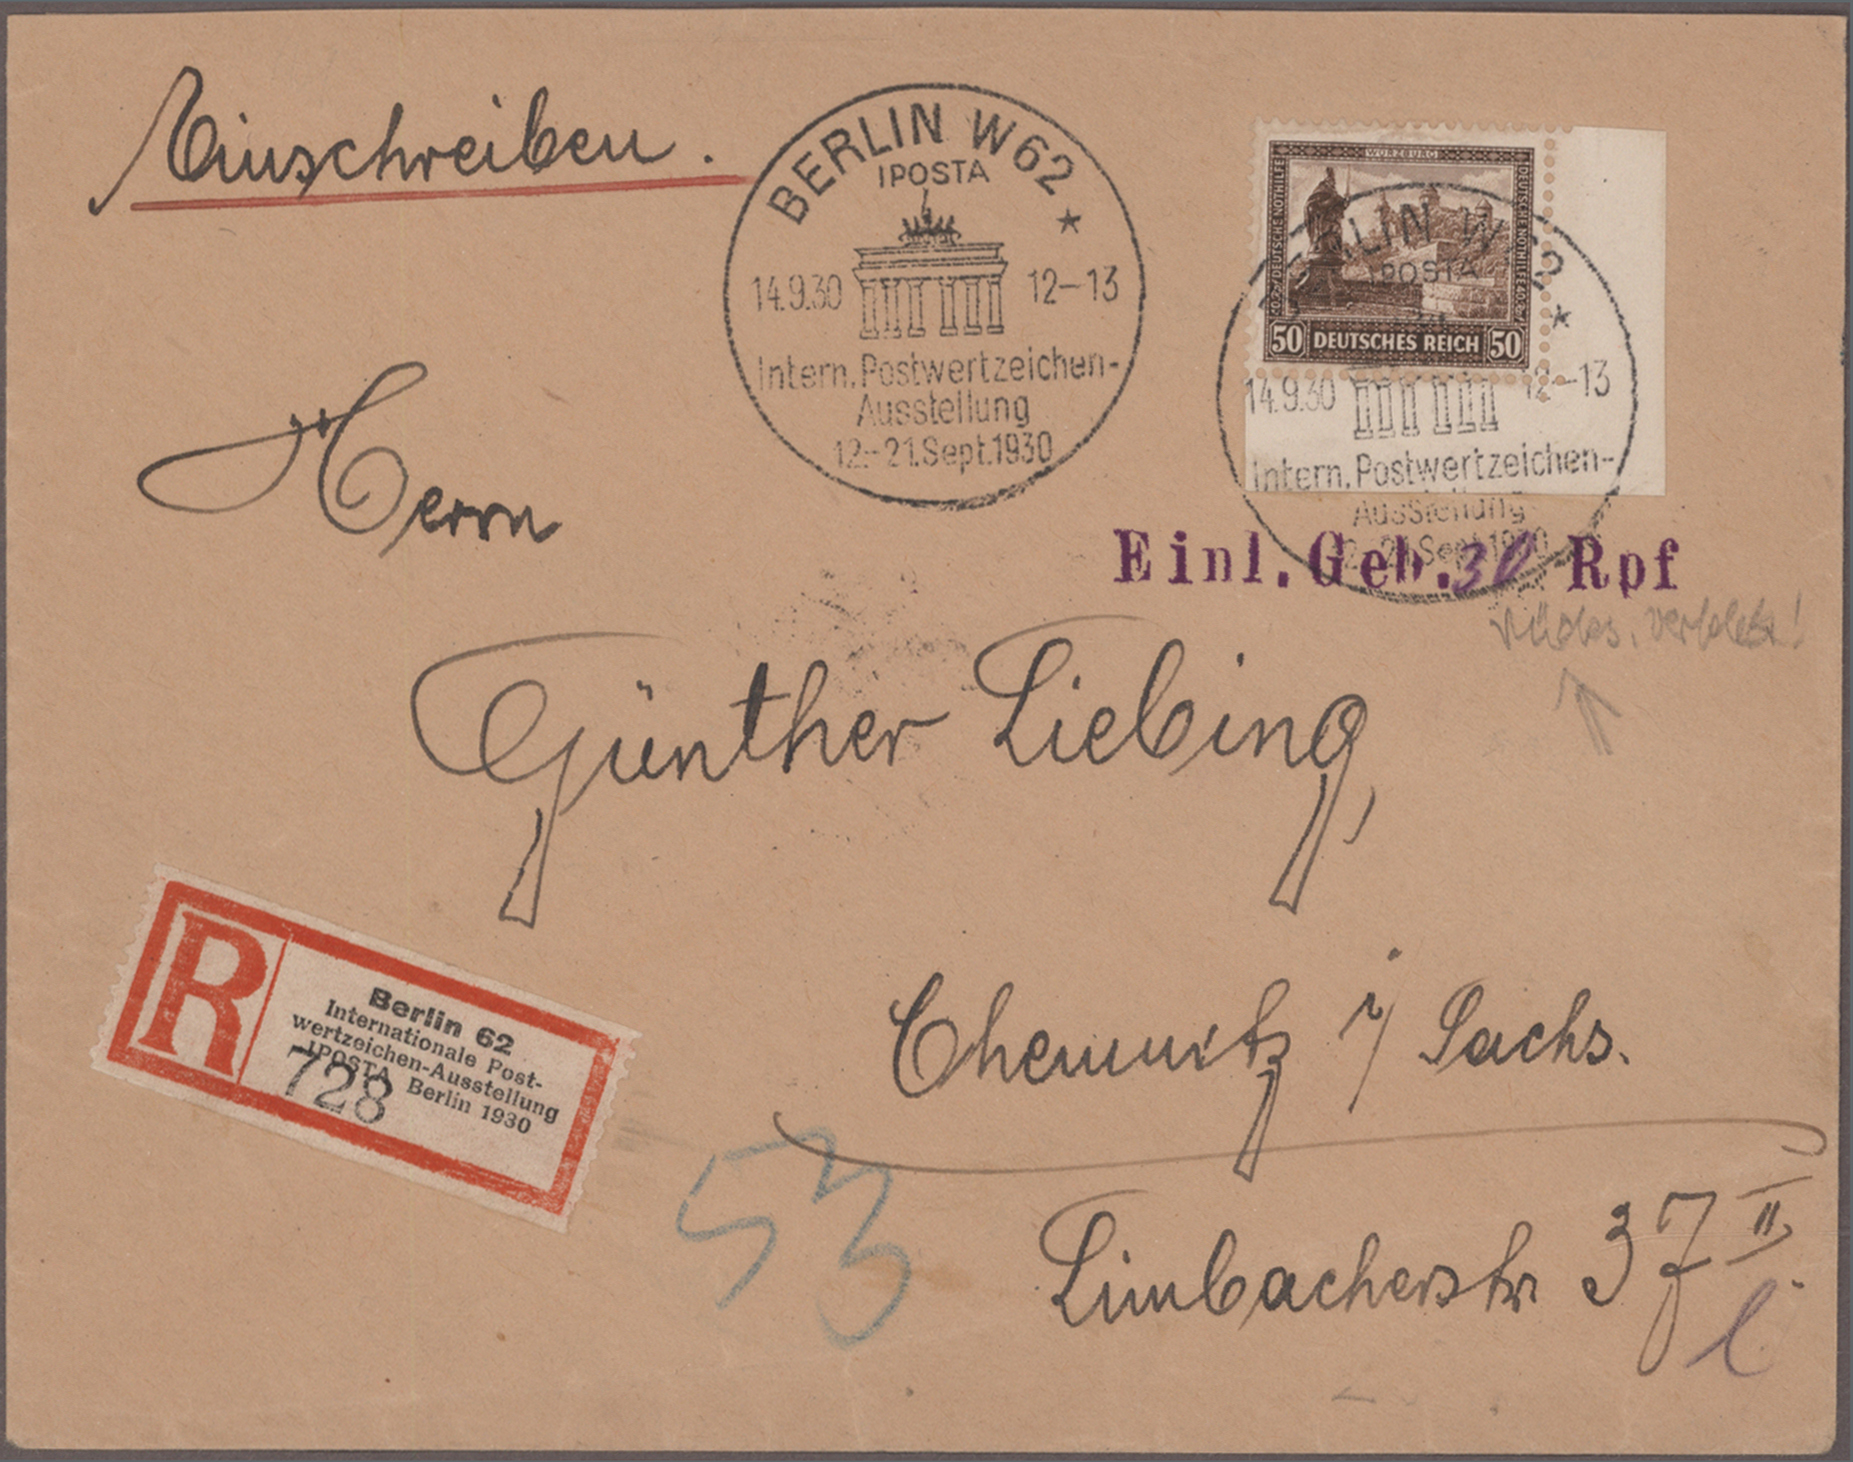 Einschreiben.
BERLIN W62
IPOSTA
14.9.30 12-13
Intern. Postwertzeichen-
Ausstellung
12.-21.Sept.1930
WÜRZBURG
DEUTSCHE NOTHILFE
DEUTSCHE NOTHILFE
50 DEUTSCHES REICH 50
BERLIN W62
IPOSTA
14.9.30 12-13
Intern. Postwertzeichen-
Ausstellung
12.-21.Sept.1930
Einl. Geb. 30 Rpf
Herrn
Günther Liebing,
Chemnitz i/Sachs.
Limbacherstr 37 II
l.
R
Berlin 62
Internationale Post-
wertzeichen-Ausstellung
IPOSTA Berlin 1930
728
53